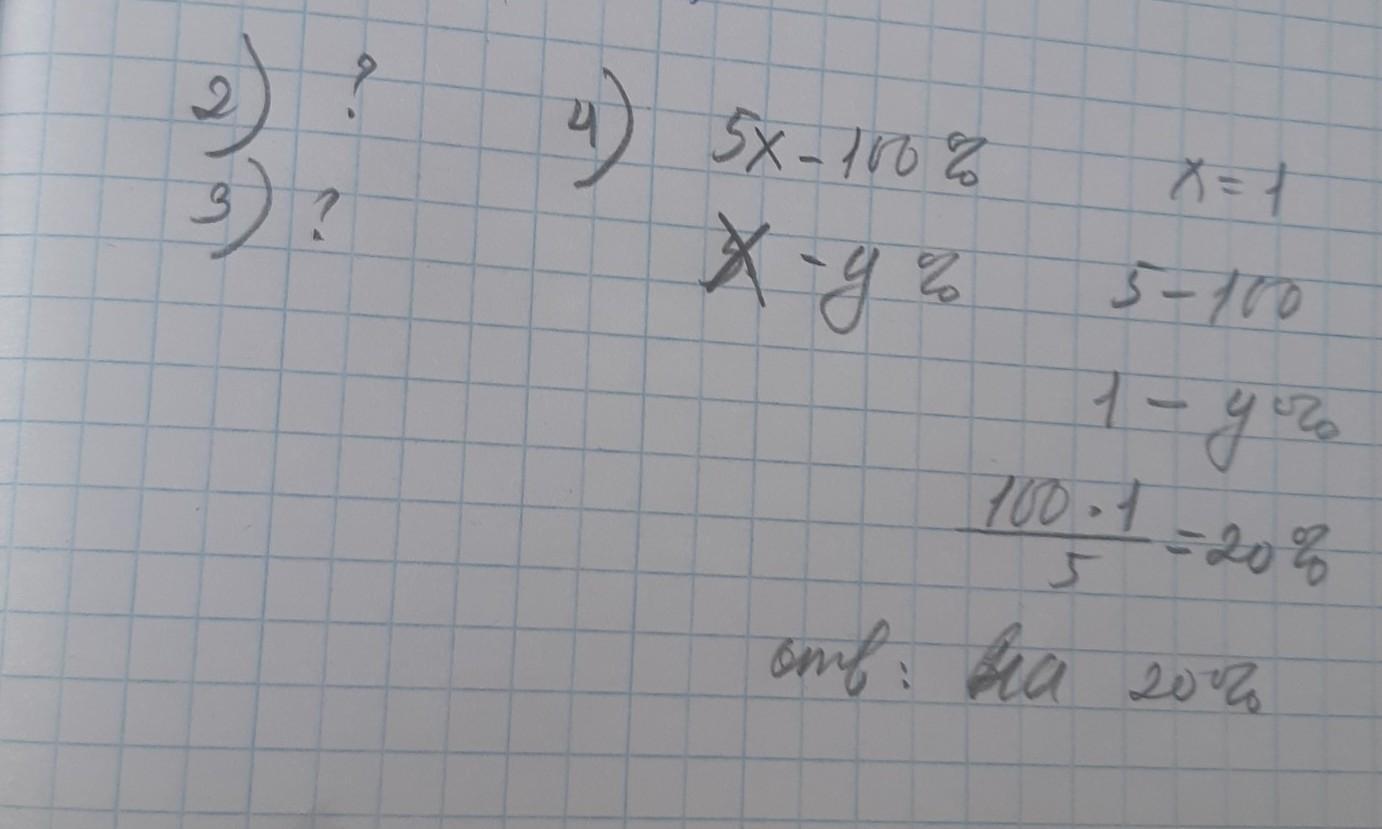 2) ?
3) ?
4) 5x - 100%
x - y %
x = 1
5 - 100
1 - y%
100 · 1 / 5 = 20%
отв: на 20%